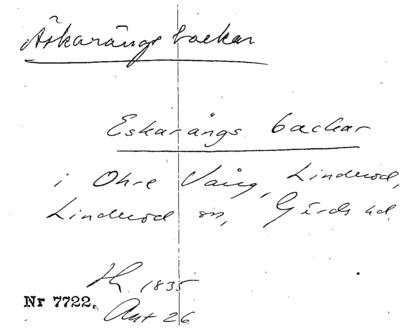 Äskarängs backar
Eskarängs backar
i Ohre Vång, Linderod,
Linderod sn, Gärds hd.
1835
Nr 7722.
Akt 26